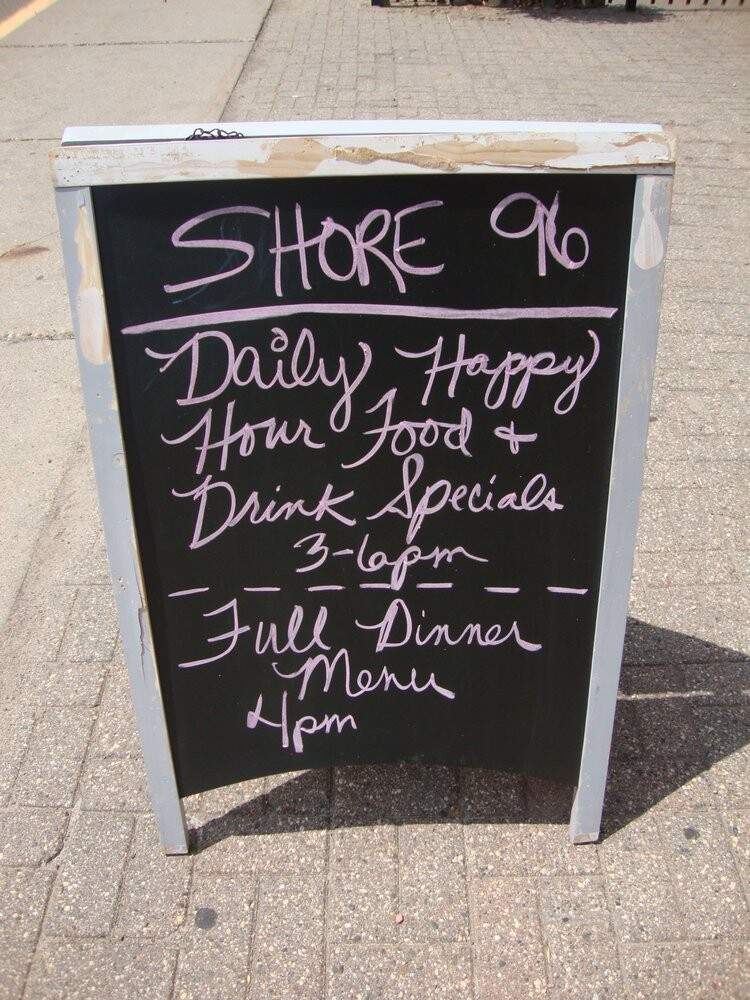 SHORE 96
Daily Happy
Hour Food +
Drink Specials
3-6pm
Full Dinner
Menu
4pm